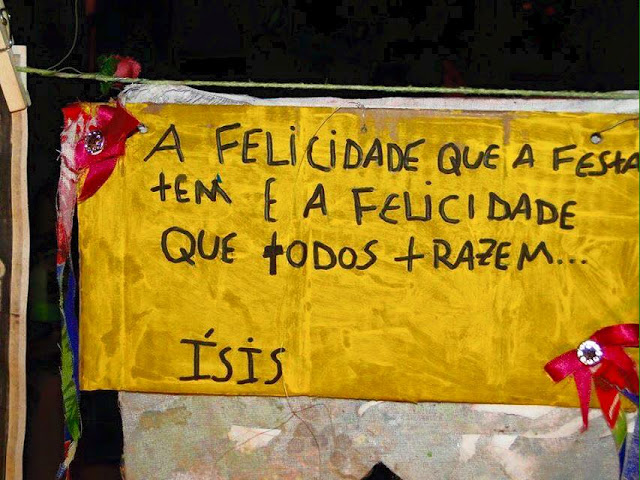 A FELICIDADE QUE A FESTA
tEM E A FELICIDADE
QUE tODOS tRAZEM...
ÍSIS